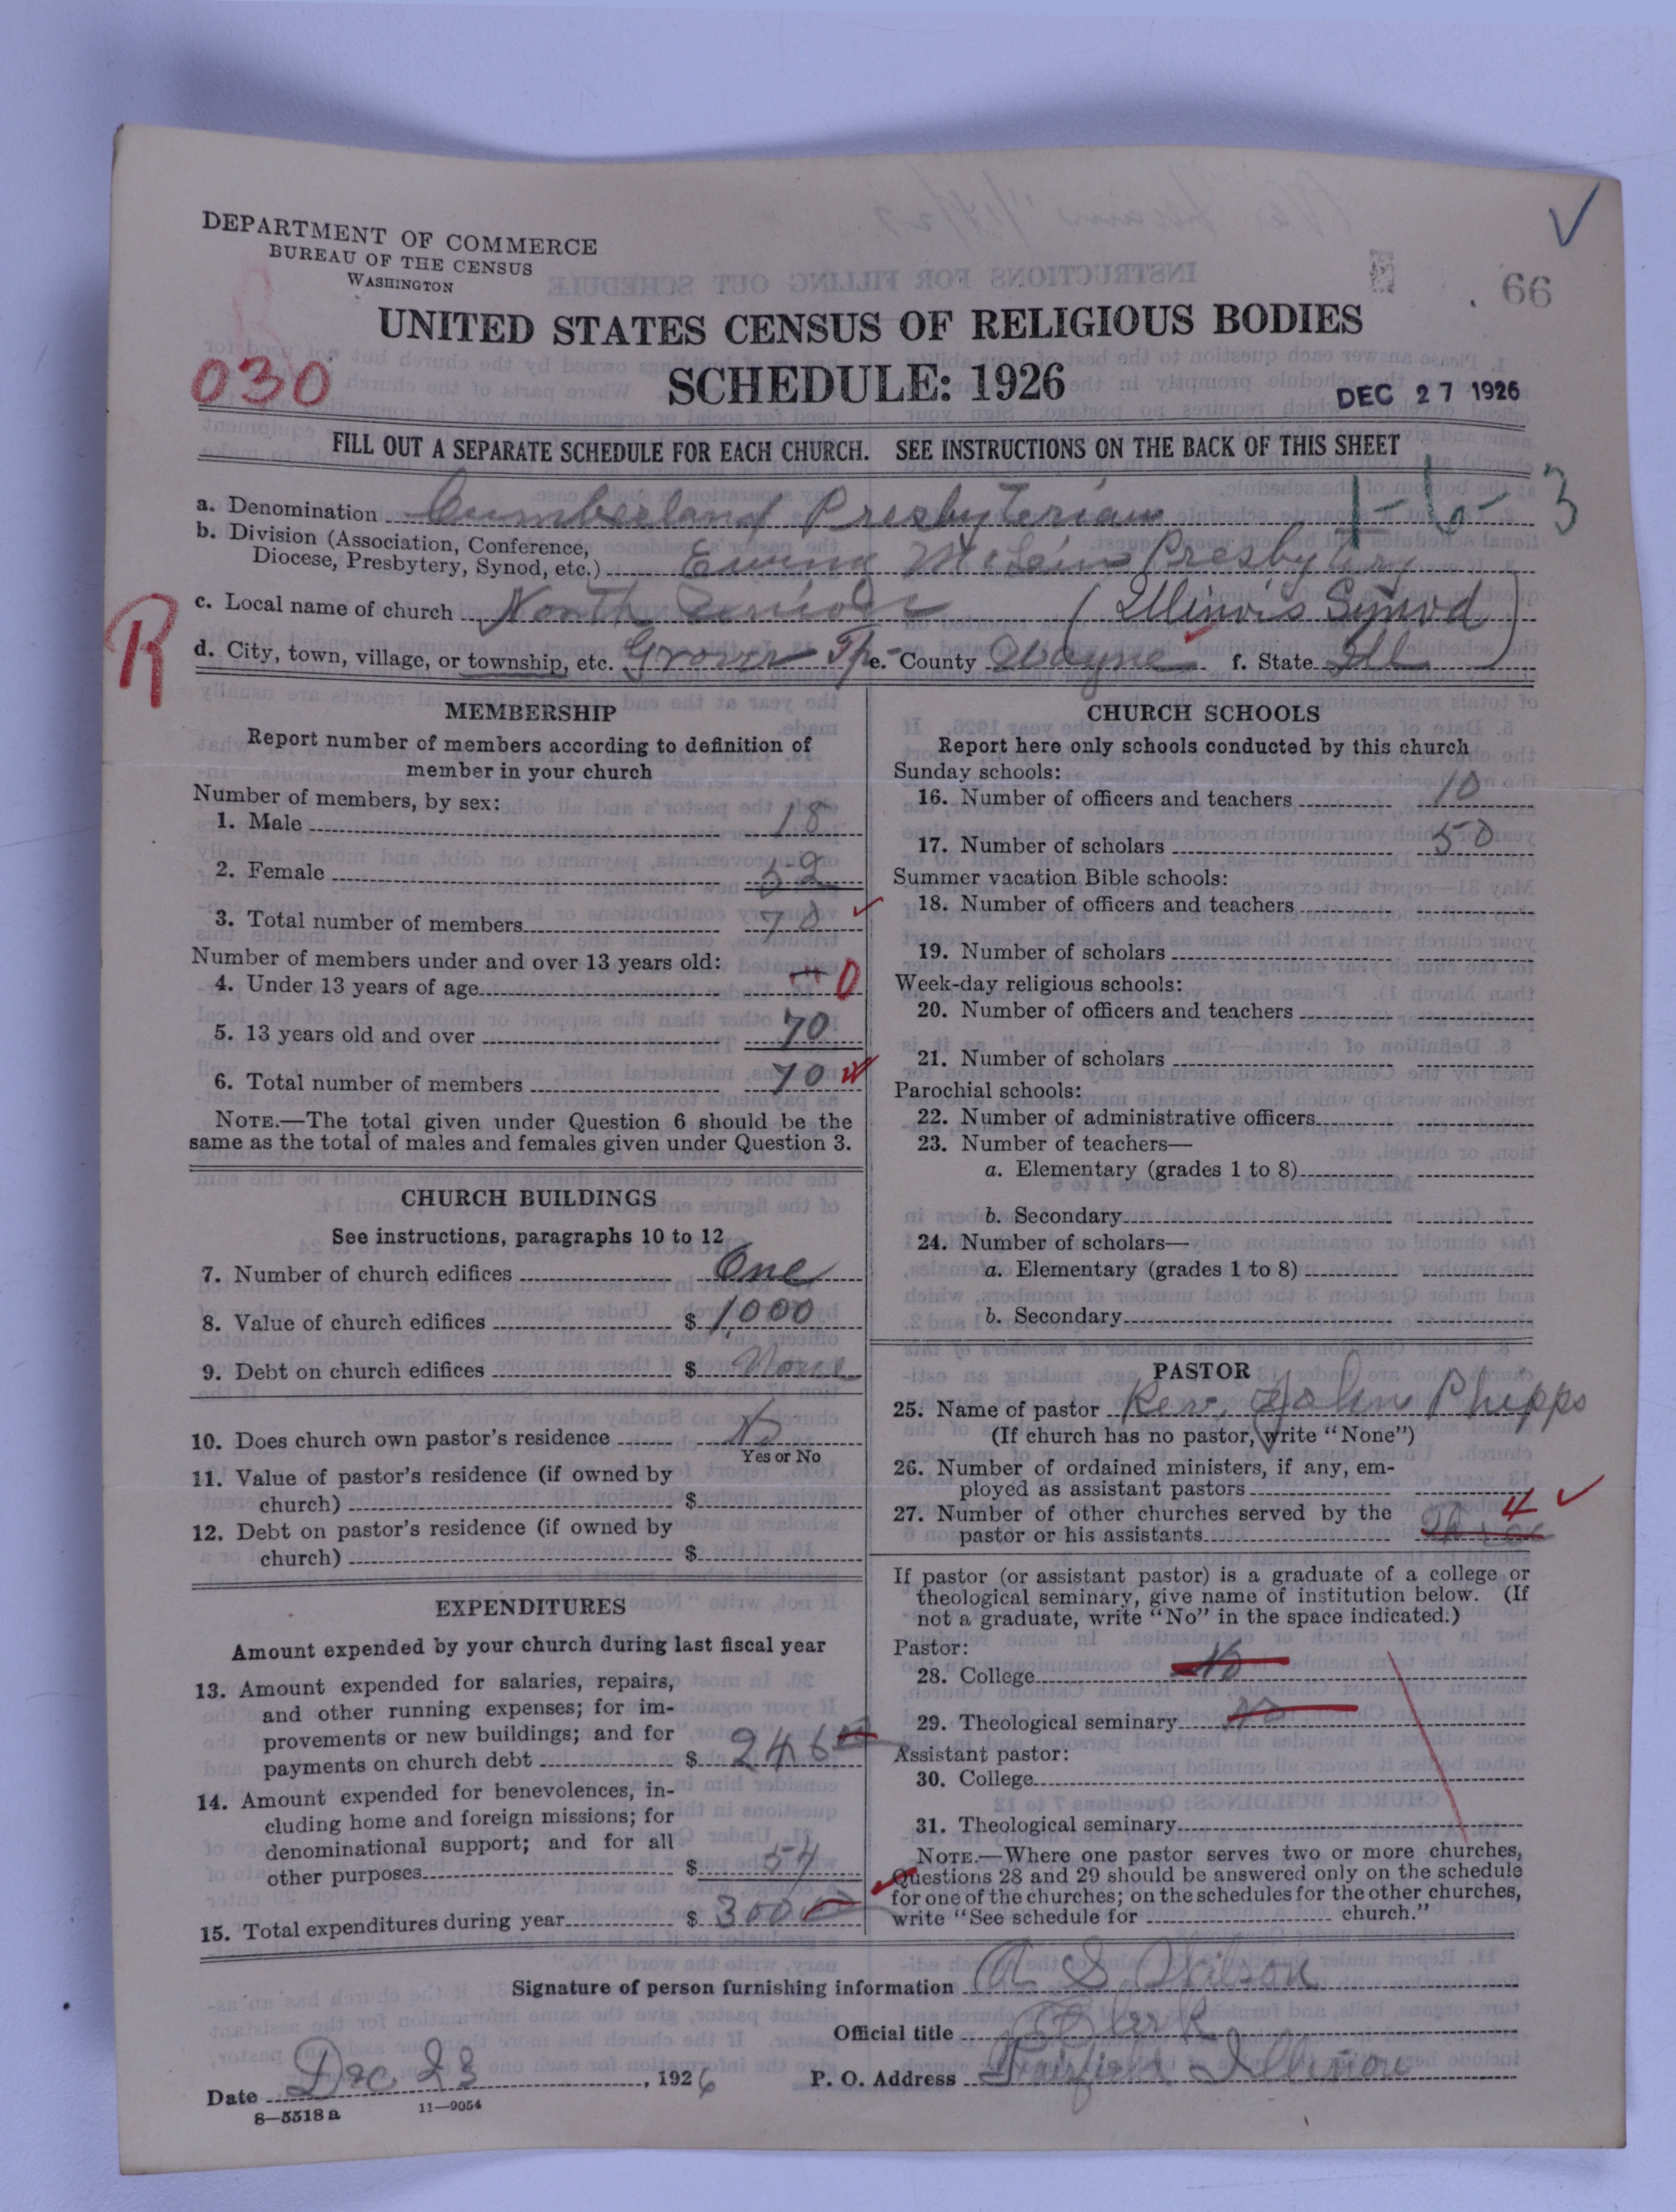 DEPARTMENT OF COMMERCE
BUREAU OF THE CENSUS
WASHINGTON
66
UNITED STATES CENSUS OF RELIGIOUS BODIES
030
SCHEDULE: 1926
DEC 27 1926
FILL OUT A SEPARATE SCHEDULE FOR EACH CHURCH. SEE INSTRUCTIONS ON THE BACK OF THIS SHEET
a. Denomination Cumberland Presbyterian
b. Division (Association, Conference,
Diocese, Presbytery, Synod, etc.) Ewing McLein Presbytery
c. Local name of church North (Illinois Synod)
R
d. City, town, village, or township, etc. Grover Tp- e. County Wayne f. State Ill
MEMBERSHIP
Report number of members according to definition of
member in your church
Number of members, by sex:
1. Male 18
2. Female 52
3. Total number of members 70
Number of members under and over 13 years old:
4. Under 13 years of age 0
5. 13 years old and over 70
6. Total number of members 70
NOTE.—The total given under Question 6 should be the
same as the total of males and females given under Question 3.
CHURCH BUILDINGS
See instructions, paragraphs 10 to 12
7. Number of church edifices One
8. Value of church edifices $ 1000
9. Debt on church edifices $ None
10. Does church own pastor's residence No
Yes or No
11. Value of pastor's residence (if owned by
church) $
12. Debt on pastor's residence (if owned by
church) $
EXPENDITURES
Amount expended by your church during last fiscal year
13. Amount expended for salaries, repairs,
and other running expenses; for im-
provements or new buildings; and for
payments on church debt $ 246
14. Amount expended for benevolences, in-
cluding home and foreign missions; for
denominational support; and for all
other purposes $ 54
15. Total expenditures during year $ 300
CHURCH SCHOOLS
Report here only schools conducted by this church
Sunday schools:
16. Number of officers and teachers 10
17. Number of scholars 50
Summer vacation Bible schools:
18. Number of officers and teachers
19. Number of scholars
Week-day religious schools:
20. Number of officers and teachers
21. Number of scholars
Parochial schools:
22. Number of administrative officers
23. Number of teachers—
a. Elementary (grades 1 to 8)
b. Secondary
24. Number of scholars—
a. Elementary (grades 1 to 8)
b. Secondary
PASTOR
25. Name of pastor Rev. John Phipps
(If church has no pastor, write "None")
26. Number of ordained ministers, if any, em-
ployed as assistant pastors
27. Number of other churches served by the
pastor or his assistants 4
If pastor (or assistant pastor) is a graduate of a college or
theological seminary, give name of institution below. (If
not a graduate, write "No" in the space indicated.)
Pastor:
28. College No
29. Theological seminary No
Assistant pastor:
30. College
31. Theological seminary
NOTE.—Where one pastor serves two or more churches,
Questions 28 and 29 should be answered only on the schedule
for one of the churches; on the schedules for the other churches,
write "See schedule for church."
Signature of person furnishing information A. S. Wilson
Official title Clerk
Date Dec 23, 1926 P. O. Address Fairfield Illinois
8—5518 a 11—9054